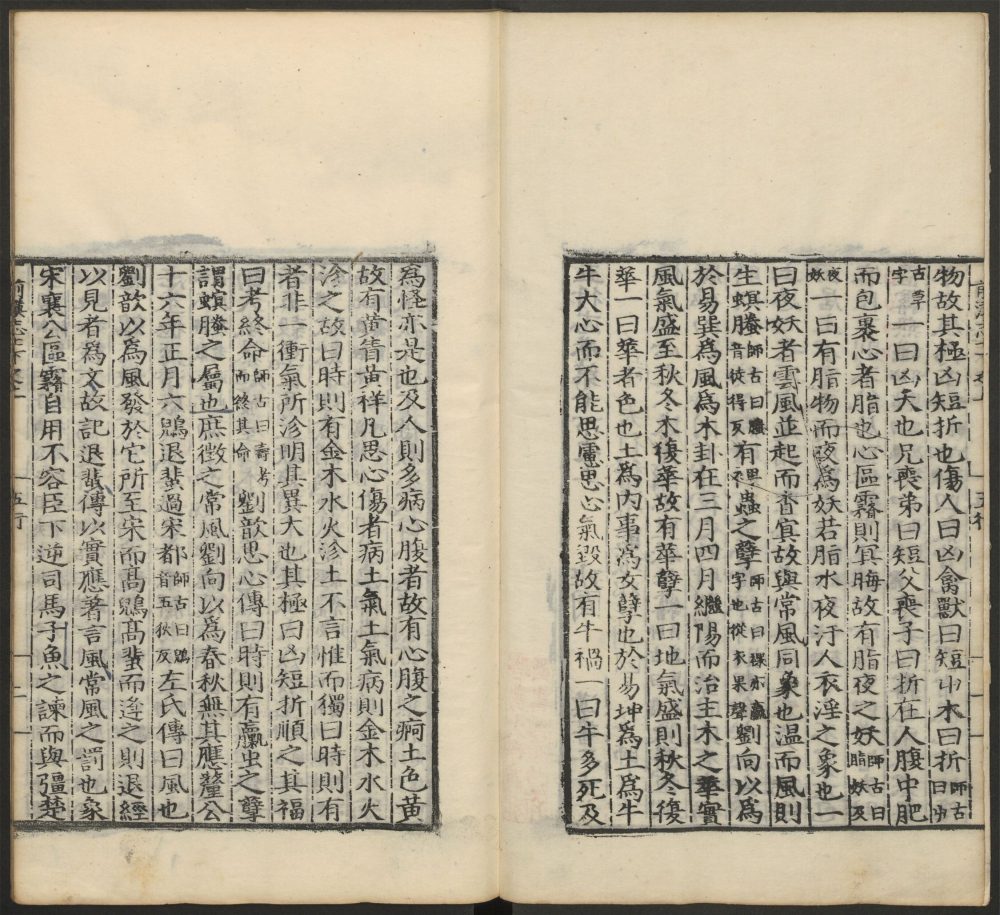 物故其極凶短折也傷人曰凶禽獸曰短屮木曰折師古曰屮
古草字一曰凶夭也兄喪弟曰短父喪子曰折在人腹中肥
而包裹心者脂也心區霿則冥晦故有脂夜之妖師古曰脂妖及
夜妖一曰有脂物而夜爲妖若脂水夜汙人衣淫之象也一
曰夜妖者雲風並起而杳冥故與常風同象也温而風則
生螟螣師古曰螣音徒得反有裸蟲之孽師古曰裸亦臝字也從衣果聲劉向以爲
於易巽爲風爲木卦在三月四月繼陽而治主木之華實
風氣盛至秋冬木復華故有華孽一曰地氣盛則秋冬復
華一曰華者色也土爲内事爲女孽也於易坤爲土爲牛
牛大心而不能思慮思心氣毀故有牛禍一曰牛多死及
爲怪亦是也及人則多病心腹者故有心腹之痾土色黄
故有黄眚黄祥凡思心傷者病土氣土氣病則金木水火
沴之故曰時則有金木水火沴土不言惟而獨曰時則有
者非一衝氣所沴明其異大也其極曰凶短折順之其福
曰考終命師古曰壽考而終其命劉歆思心傳曰時則有臝虫之孽
謂螟螣之屬也庶徵之常風劉向以爲春秋無其應釐公
十六年正月六鶂退蜚過宋都師古曰鶂音五狄反左氏傳曰風也
劉歆以爲風發於它所至宋而髙鶂髙蜚而逢之則退經
以見者爲文故記退蜚傳以實應著言風常風之罰也象
宋襄公區霿自用不容臣下逆司馬子魚之諫而與彊楚
五行